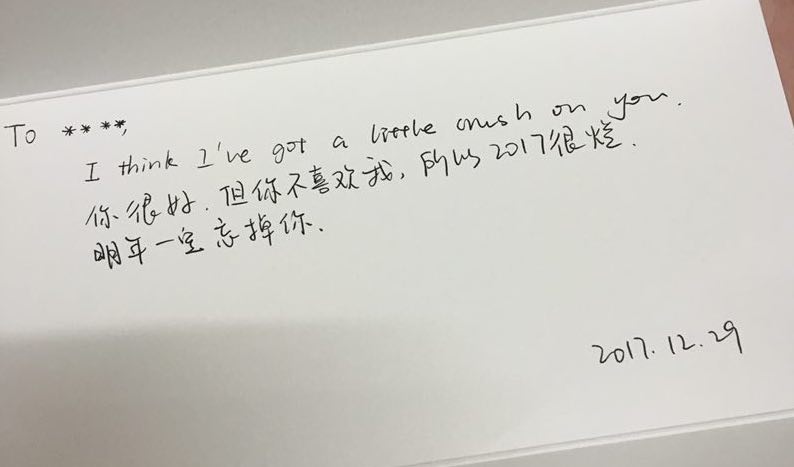 To ****,
I think I've got a little crush on you.
你很好.但你不喜欢我,所以2017很烂.
明年一定忘掉你.
2017.12.29